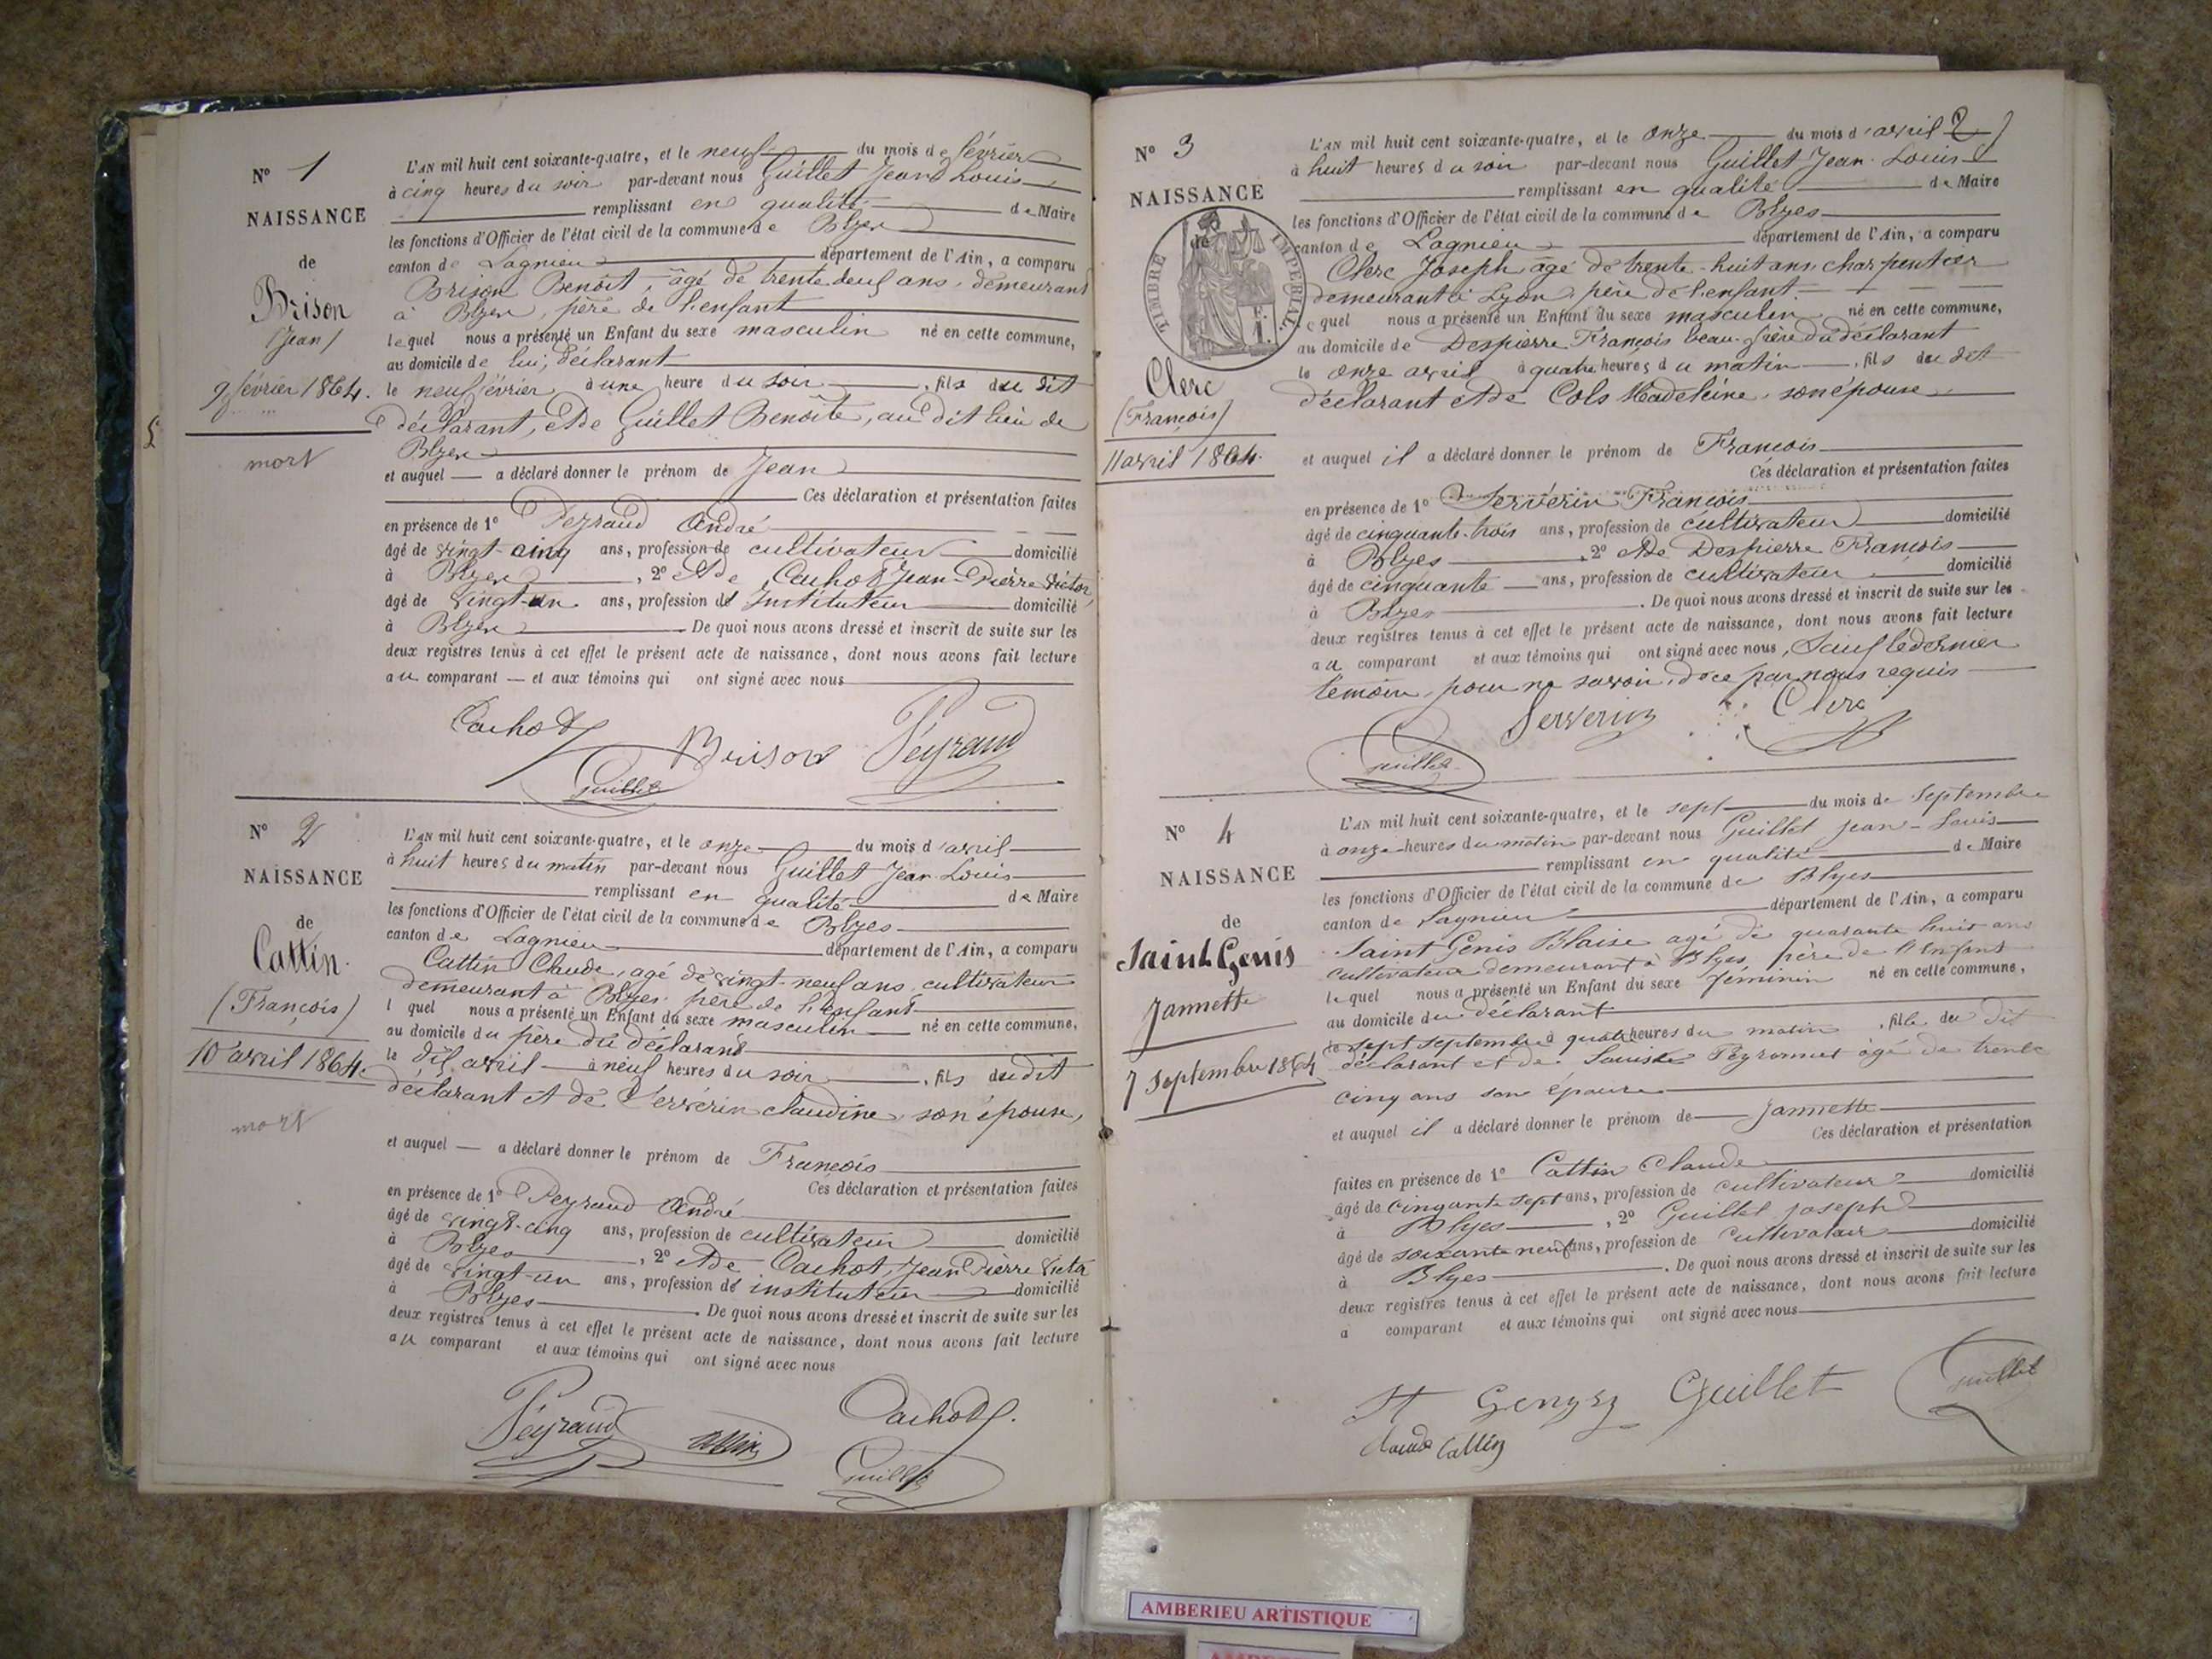 N° 1
NAISSANCE
de
Brison
(Jean)
9 février 1864.
mort
L'AN mil huit cent soixante-quatre, et le neuf du mois de février
à cinq heures du soir par-devant nous Guillet Jean Louis
remplissant en qualité de Maire
les fonctions d'Officier de l'état civil de la commune de Blyes
canton de Lagnieu département de l'Ain, a comparu
Brison Benoit, âgé de trente deux ans, demeurant
à Blyes, père de l'enfant
lequel nous a présenté un Enfant du sexe masculin né en cette commune,
au domicile de lui, déclarant
le neuf février à une heure du soir, fils du dit
déclarant, et de Guillet Benoîte, au dit lieu de
Blyes
et auquel — a déclaré donner le prénom de Jean
Ces déclaration et présentation faites
en présence de 1° Peyraud André
âgé de vingt-cinq ans, profession de cultivateur domicilié
à Blyes, 2° et de Cachot Jean-Pierre Victor,
âgé de vingt-un ans, profession de Instituteur domicilié
à Blyes. De quoi nous avons dressé et inscrit de suite sur les
deux registres tenus à cet effet le présent acte de naissance, dont nous avons fait lecture
au comparant — et aux témoins qui ont signé avec nous
Cachot Brison Peyraud
Guillet
N° 2
NAISSANCE
de
Cattin.
(François)
10 avril 1864.
mort
L'AN mil huit cent soixante-quatre, et le onze du mois d'avril
à huit heures du matin par-devant nous Guillet Jean-Louis
remplissant en qualité de Maire
les fonctions d'Officier de l'état civil de la commune de Blyes
canton de Lagnieu département de l'Ain, a comparu
Cattin Claude, agé de vingt-neuf ans cultivateur
demeurant à Blyes père de l'enfant
l quel nous a présenté un Enfant du sexe masculin né en cette commune,
au domicile du père du déclarant
le dix avril à neuf heures du soir, fils du dit
déclarant et de Serverin Claudine son épouse,
et auquel — a déclaré donner le prénom de François
Ces déclaration et présentation faites
en présence de 1° Peyraud André
âgé de vingt-cinq ans, profession de cultivateur domicilié
à Blyes, 2° et de Cachot, Jean Pierre Victor
âgé de vingt-un ans, profession de instituteur domicilié
à Blyes. De quoi nous avons dressé et inscrit de suite sur les
deux registres tenus à cet effet le présent acte de naissance, dont nous avons fait lecture
au comparant et aux témoins qui ont signé avec nous
Peyraud Cattin Cachot
Guillet
N° 3
NAISSANCE
de
TIMBRE IMPERIAL
Clerc
(François)
11 avril 1864.
L'AN mil huit cent soixante-quatre, et le onze du mois d'avril 2
à huit heures du soir par-devant nous Guillet Jean-Louis
remplissant en qualité de Maire
les fonctions d'Officier de l'état civil de la commune de Blyes
canton de Lagnieu département de l'Ain, a comparu
Clerc Joseph âgé de trente-huit ans, charpentier
demeurant à Lyon, père de l'enfant.
lequel nous a présenté un Enfant du sexe masculin né en cette commune,
au domicile de Despierre François beau-frère du déclarant
le onze avril à quatre heures du matin, fils du dit
déclarant et de Cols Madeleine, son épouse
et auquel il a déclaré donner le prénom de François
Ces déclaration et présentation faites
en présence de 1° Serverin François
âgé de cinquante-trois ans, profession de cultivateur domicilié
à Blyes, 2° et de Despierre François
âgé de cinquante ans, profession de cultivateur domicilié
à Blyes. De quoi nous avons dressé et inscrit de suite sur les
deux registres tenus à cet effet le présent acte de naissance, dont nous avons fait lecture
au comparant et aux témoins qui ont signé avec nous, Sauf le dernier
témoin, pour ne savoir, de ce par nous requis
Serverin Clerc
Guillet
N° 4
NAISSANCE
de
Saint Genis
Jannette
7 Septembre 1864
L'AN mil huit cent soixante-quatre, et le sept du mois de Septembre
à onze heures du matin par-devant nous Guillet jean-Louis
remplissant en qualité de Maire
les fonctions d'Officier de l'état civil de la commune de Blyes
canton de Lagnieu département de l'Ain, a comparu
Saint Genis Blaise agé de quarante huit ans
cultivateur demeurant à Blyes père de l'Enfant
lequel nous a présenté un Enfant du sexe féminin né en cette commune,
au domicile du déclarant
le sept septembre à quatre heures du matin, fille du dit
déclarant et de Louise Peyronnet agé de trente
cinq ans son épouse
et auquel il a déclaré donner le prénom de Jannette
Ces déclaration et présentation
faites en présence de 1° Cattin Claude
âgé de cinquante sept ans, profession de cultivateur domicilié
à Blyes, 2° Guillet joseph
âgé de soixante neuf ans, profession de cultivateur domicilié
à Blyes. De quoi nous avons dressé et inscrit de suite sur les
deux registres tenus à cet effet le présent acte de naissance, dont nous avons fait lecture
à comparant et aux témoins qui ont signé avec nous
St Genis Guillet Guillet
Claude Cattin
AMBERIEU ARTISTIQUE